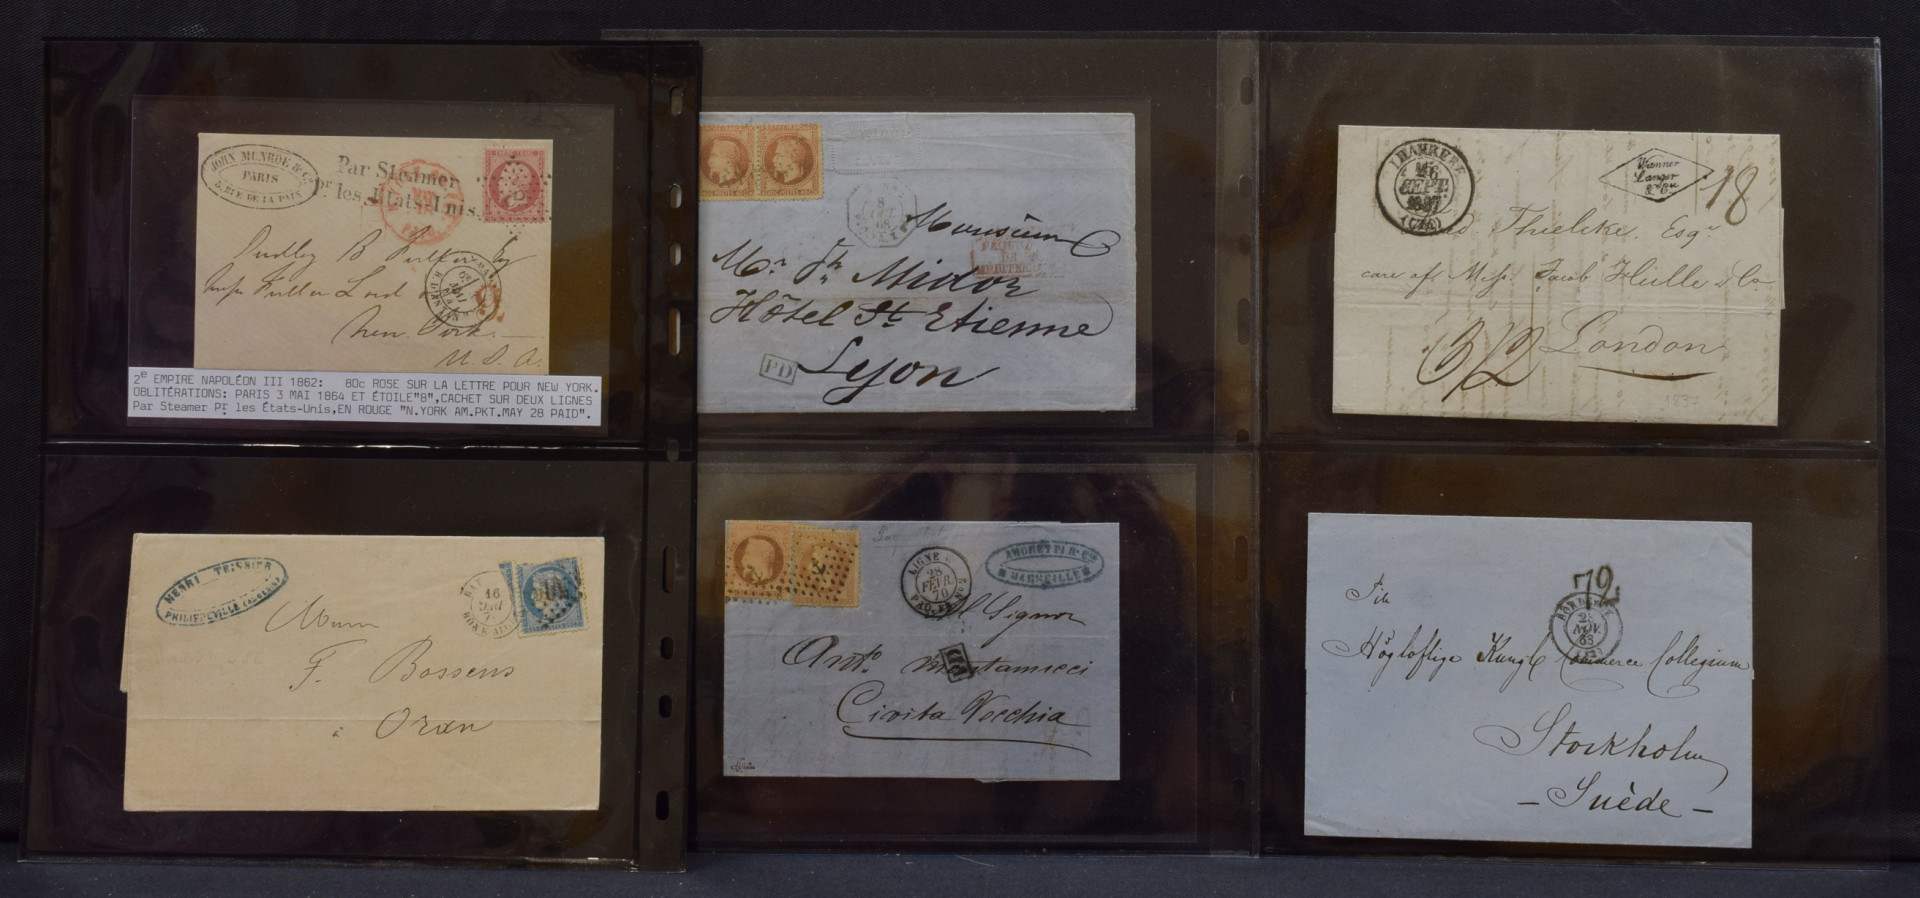 JOHN MUNROE & Co.
PARIS
5, RUE DE LA PAIX
Par Steamer
pr les Etats-Unis.
Dudley B Fuller Esq
Messrs Fuller Lord
New York
U.S.A.
2e EMPIRE NAPOLÉON III 1862: 80c ROSE SUR LA LETTRE POUR NEW YORK.
OBLITÉRATIONS: PARIS 3 MAI 1864 ET ÉTOILE"8",CACHET SUR DEUX LIGNES
Par Steamer Pr les États-Unis,EN ROUGE "N.YORK AM.PKT.MAY 28 PAID".
HENRI TEISSIER
PHILIPPEVILLE
16
F. Bossens
à Oran
8
68
Monsieur
Mr Fh Midor
Hôtel St Etienne
Lyon
PD
LIGNE
28
FEVR.
70
PAQ. FR. No
MARSEILLE
Al Signor
Civita Vecchia
PD
SEPT.
(C76)
Wanner
Langer
& Cie
18
Thielcke. Esqr
care of Messrs Jacob Hulle & Co
London
1837
Til
Högloflige Kungl Commerce Collegium
Stockholm
- Suède -
BORDEAUX
NOV.
63